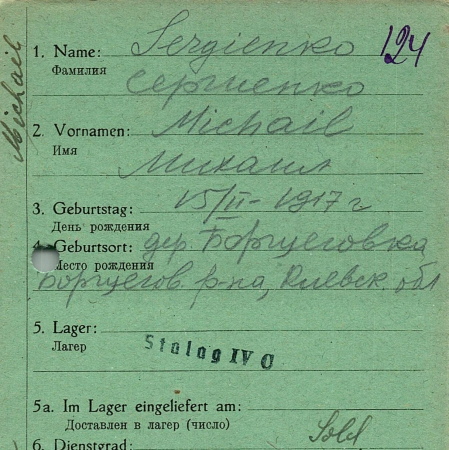 Michail
1. Name: Sergienko 124
Фамилия Сергиенко
2. Vornamen: Michail
Имя Михаил
3. Geburtstag: 15/II - 1917 г
День рождения
4. Geburtsort: дер. Борщеговка
Место рождения
Борщегов. р-на, Киевск. обл
5. Lager:
Лагер Stalag IV
5a. Im Lager eingeliefert am:
Доставлен в лагер (число)
6. Dienstgrad: Sold